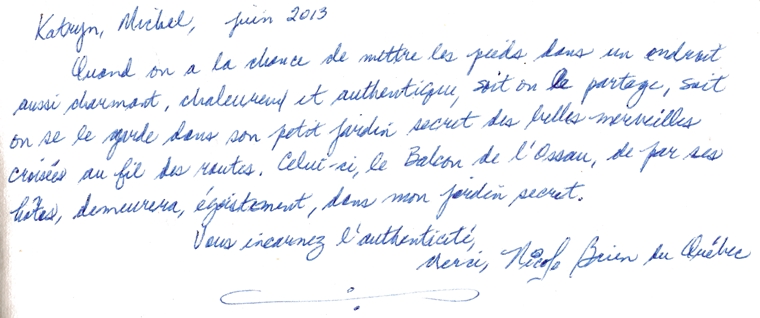 Katryn, Michel, juin 2013
Quand on a la chance de mettre les pieds dans un endroit
aussi charmant, chaleureux et authentique, soit on le partage, soit
on se le garde dans son petit jardin secret des belles merveilles
croisées au fil des routes. Celui-ci, le Balcon de l'Ossau, de par ses
hôtes, demeurera, égoïstement, dans mon jardin secret.
Vous incarnez l'authenticité,
Merci, Nicole Brien du Québec